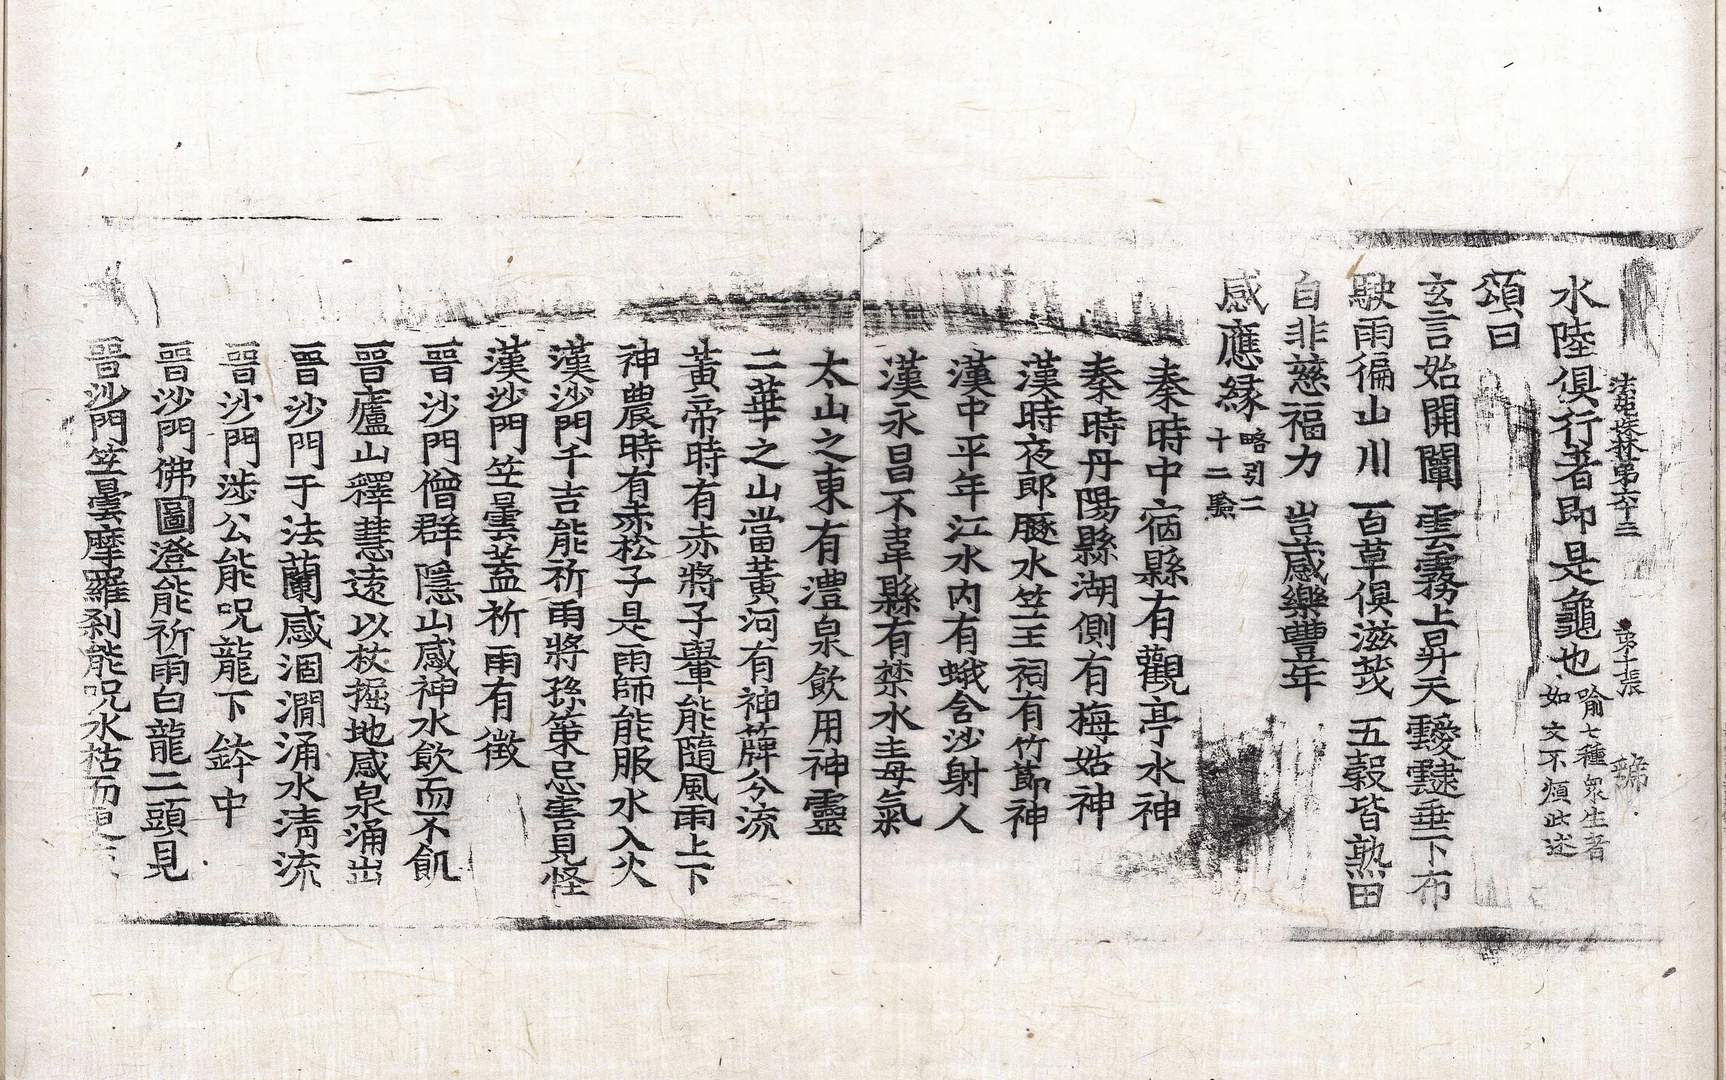 法苑珠林第六十三　第十張
水陸俱行者即是龜也喻七種眾生者如文不煩此述
頌曰
玄言始開闡　雲霧上昇天　靉靆垂下布
駛雨徧山川　百草俱滋茂　五穀皆熟田
自非慈福力　豈感樂豐年
感應緣略引二十二驗
秦時中宿縣有觀亭水神
秦時丹陽縣湖側有梅姑神
漢時夜郎豚水竺王祠有竹節神
漢中平年江水内有蜮含沙射人
漢永昌不韋縣有禁水主毒氣
太山之東有澧泉飲用神靈
二華之山當黃河有神霹分流
黃帝時有赤將子轝能隨風雨上下
神農時有赤松子是雨師能服水入火
漢沙門千吉能祈雨將孫策忌害見怪
漢沙門竺曇蓋祈雨有徵
晉沙門僧群隱山感神水飲而不飢
晉廬山釋慧遠以杖掘地感泉涌出
晉沙門于法蘭感涸澗涌水清流
晉沙門涉公能呪龍下鉢中
晉沙門佛圖澄能祈雨白龍二頭見
晉沙門竺曇摩羅刹能呪水枯而更